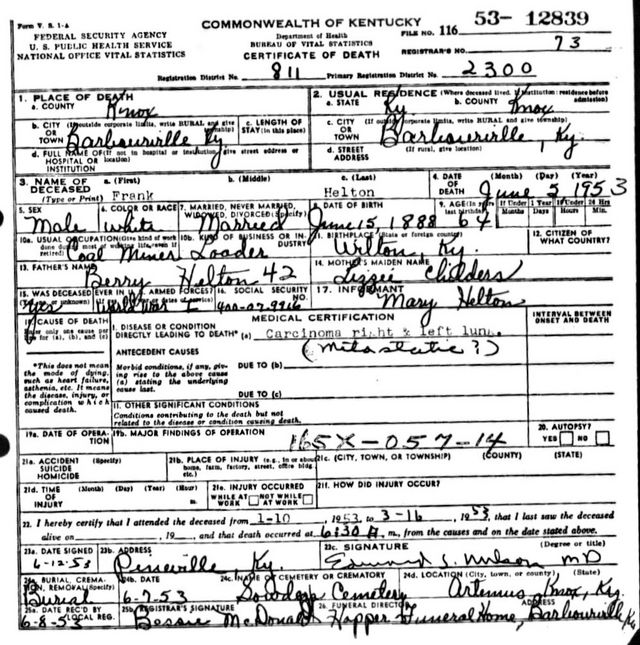 Form V. S. 1-A
COMMONWEALTH OF KENTUCKY
53- 12839
FEDERAL SECURITY AGENCY
Department of Health
FILE NO. 116
U. S. PUBLIC HEALTH SERVICE
BUREAU OF VITAL STATISTICS
NATIONAL OFFICE VITAL STATISTICS
CERTIFICATE OF DEATH
REGISTRAR'S NO. 73
Registration District No. 811 Primary Registration District No. 2300
1. PLACE OF DEATH
2. USUAL RESIDENCE (Where deceased lived. If institution: residence before admission)
a. COUNTY Knox
a. STATE Ky b. COUNTY Knox
b. CITY (If outside corporate limits, write RURAL and give township) OR TOWN Barbourville Ky
c. LENGTH OF STAY (in this place)
c. CITY (If outside corporate limits, write RURAL and give township) OR TOWN Barbourville, Ky.
d. FULL NAME OF (If not in hospital or institution, give street address or location) HOSPITAL OR INSTITUTION
d. STREET ADDRESS (If rural, give location)
3. NAME OF DECEASED (Type or Print)
a. (First) Frank
b. (Middle)
c. (Last) Helton
4. DATE OF DEATH (Month) (Day) (Year) June 5, 1953
5. SEX Male
6. COLOR OR RACE White
7. MARRIED, NEVER MARRIED, WIDOWED, DIVORCED (Specify) Married
8. DATE OF BIRTH June 15, 1888
9. AGE (In years last birthday) 64
If Under 1 Year Months Days
If Under 24 Hrs Hours Min.
10a. USUAL OCCUPATION (Give kind of work done during most of working life, even if retired) Coal Miner
10b. KIND OF BUSINESS OR INDUSTRY Loader
11. BIRTHPLACE (State or foreign country) Wilton, Ky.
12. CITIZEN OF WHAT COUNTRY?
13. FATHER'S NAME Berry Helton 42
14. MOTHER'S MAIDEN NAME Lizzie Childers
15. WAS DECEASED EVER IN U.S. ARMED FORCES? (Yes, no, or unknown) (If yes, give war or dates of service) Yes World War I
16. SOCIAL SECURITY NO. 400-07-9916
17. INFORMANT Mary Helton
18. CAUSE OF DEATH
Enter only one cause per line for (a), (b), and (c)
MEDICAL CERTIFICATION
INTERVAL BETWEEN ONSET AND DEATH
I. DISEASE OR CONDITION DIRECTLY LEADING TO DEATH* (a) Carcinoma right & left lung.
(Metastatic?)
*This does not mean the mode of dying, such as heart failure, asthenia, etc. It means the disease, injury, or complication which caused death.
ANTECEDENT CAUSES
Morbid conditions, if any, giving rise to the above cause (a) stating the underlying cause last.
DUE TO (b)
DUE TO (c)
II. OTHER SIGNIFICANT CONDITIONS
Conditions contributing to the death but not related to the disease or condition causing death.
19a. DATE OF OPERATION
19b. MAJOR FINDINGS OF OPERATION
165X-057-14
20. AUTOPSY? YES NO
21a. ACCIDENT SUICIDE HOMICIDE (Specify)
21b. PLACE OF INJURY (e.g., in or about home, farm, factory, street, office bldg., etc.)
21c. (CITY, TOWN, OR TOWNSHIP) (COUNTY) (STATE)
21d. TIME OF INJURY (Month) (Day) (Year) (Hour)
21e. INJURY OCCURRED WHILE AT WORK NOT WHILE AT WORK
21f. HOW DID INJURY OCCUR?
22. I hereby certify that I attended the deceased from 1-10, 1953, to 3-16, 1953, that I last saw the deceased
alive on , 19 , and that death occurred at 6:30 A m., from the causes and on the date stated above.
23a. DATE SIGNED 6-12-53
23b. ADDRESS Pineville, Ky.
23c. SIGNATURE (Degree or title) Edward S. Wilson MD
24a. BURIAL, CREMATION, REMOVAL (Specify) Burial
24b. DATE 6-7-53
24c. NAME OF CEMETERY OR CREMATORY Cemetery
24d. LOCATION (City, town, or county) (State) Artemus Knox, Ky.
25a. DATE REC'D BY LOCAL REG. 6-8-53
25b. REGISTRAR'S SIGNATURE Bessie McDonald
26. FUNERAL DIRECTOR ADDRESS Hopper Funeral Home, Barbourville Ky